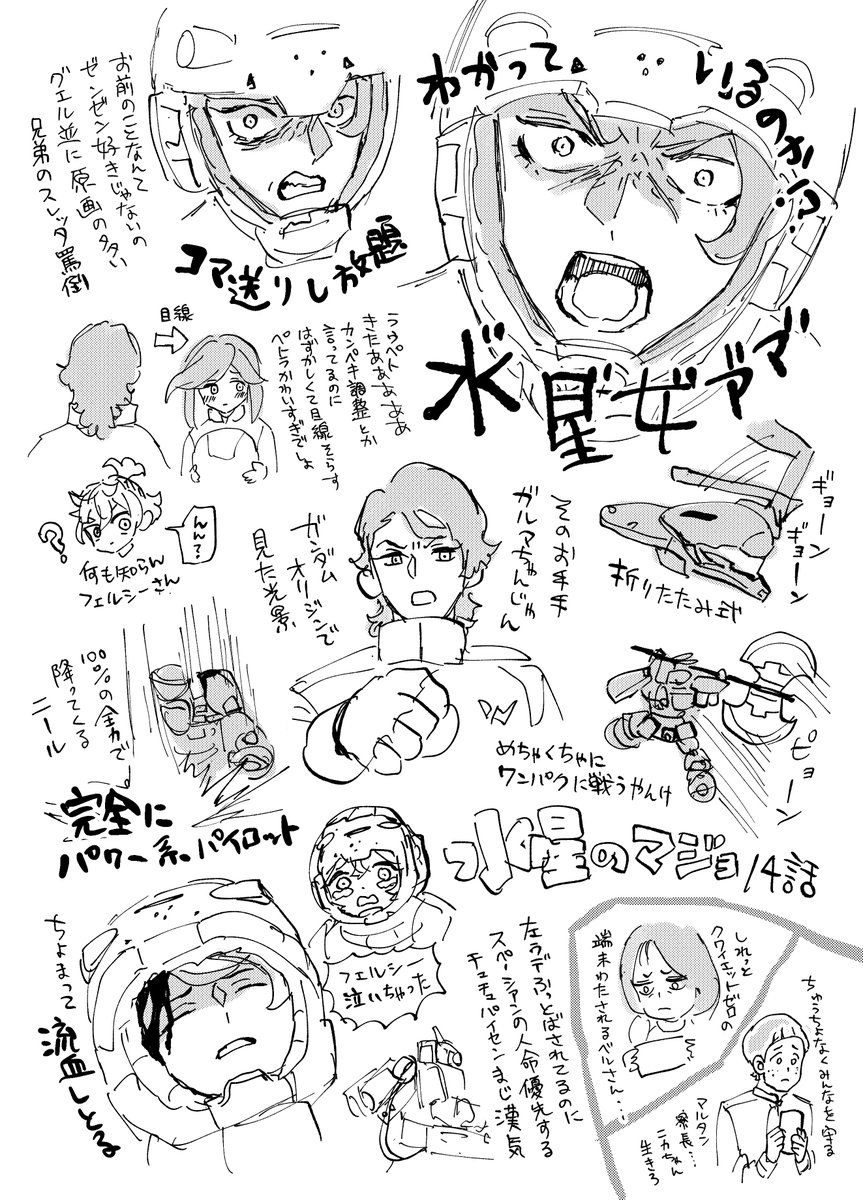 わかって
いるのか!?
水星女ァァ゙
お前のことなんて
ゼンゼン好きじゃないの
グエル並に原画の多い
兄弟のスレッタ罵倒
コマ送りし放題
目線
ラウペト
きたあああああ
カンペキ調整とか
言ってるのに
はずかしくて目線そらす
ペトラかわいすぎでしょ
んん?
?
何も知らん
フェルシーさん
そのお手手
ガルマちゃんじゃん
ガンダム
オリジンで
見た光景
ギョーン
ギョーン
折りたたみ式
100%の全力で
降ってくる
ニール
めちゃくちゃに
ワンパクに戦うやんけ
ピョーン
完全に
パワー系パイロット
水星のマジョ14話
フェルシー
泣いちゃった
ちょまって
流血しとる
左うでふっとばされてるのに
スペーシアンの人命優先する
チュチュパイセンまじ漢気
しれっと
クワイエットゼロの
端末わたされるベルさん…
ちゅうちょなくみんなを守る
マルタン
寮長…
ニカちゃん
生きろ